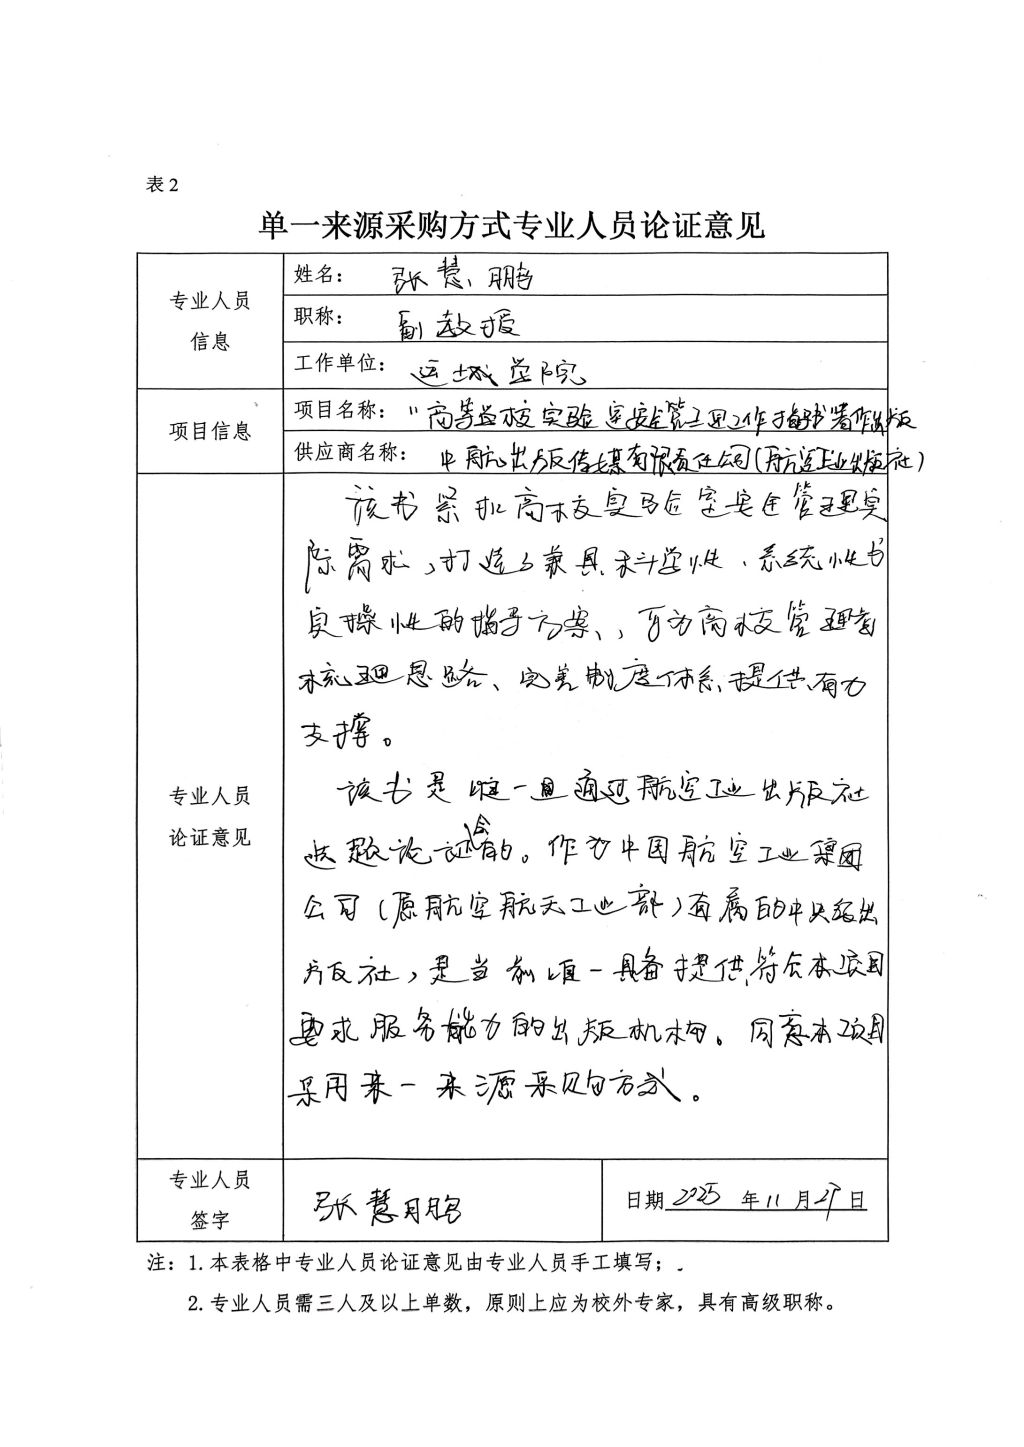 表2
单一来源采购方式专业人员论证意见
专业人员
信息
姓名： 张慧鹏
职称： 副教授
工作单位： 运城学院
项目信息
项目名称： "高等学校实验室安全管理工作指导书"著作出版
供应商名称： 中航出版传媒有限责任公司(航空工业出版社)
专业人员
论证意见
该书紧扣高校实验室安全管理实
际需求，打造了兼具科学性、系统性与
实操性的指导方案，可为高校管理者
梳理思路、完善制度体系提供有力
支撑。
该书是唯一且通过航空工业出版社
选题论证会的。作为中国航空工业集团
公司（原航空航天工业部）直属的中央级出
版社，是当前唯一具备提供符合本项目
要求服务能力的出版机构。同意本项目
采用单一来源采购方式。
专业人员
签字
张慧鹏
日期 2025 年 11 月 27 日
注：1.本表格中专业人员论证意见由专业人员手工填写；
2.专业人员需三人及以上单数，原则上应为校外专家，具有高级职称。